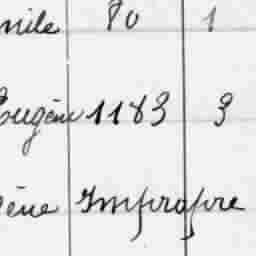 mile 80 1
Eugène 1183 3
ène Impropre